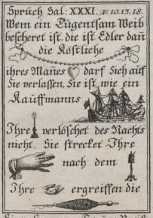 Sprüch Sal: XXXI. v. 10.13.18.
Wem ein Tügentsam Weib
bescheret ist, die ist Edler dañ
die Köstliche
ihres Mañes darf sich auf
Sie verlassen, Sie ist, wie ein
Kaüffmanns
Ihre verlöschet des Nachts
nicht. Sie strecket Ihre
nach dem
Ihre ergreiffen die